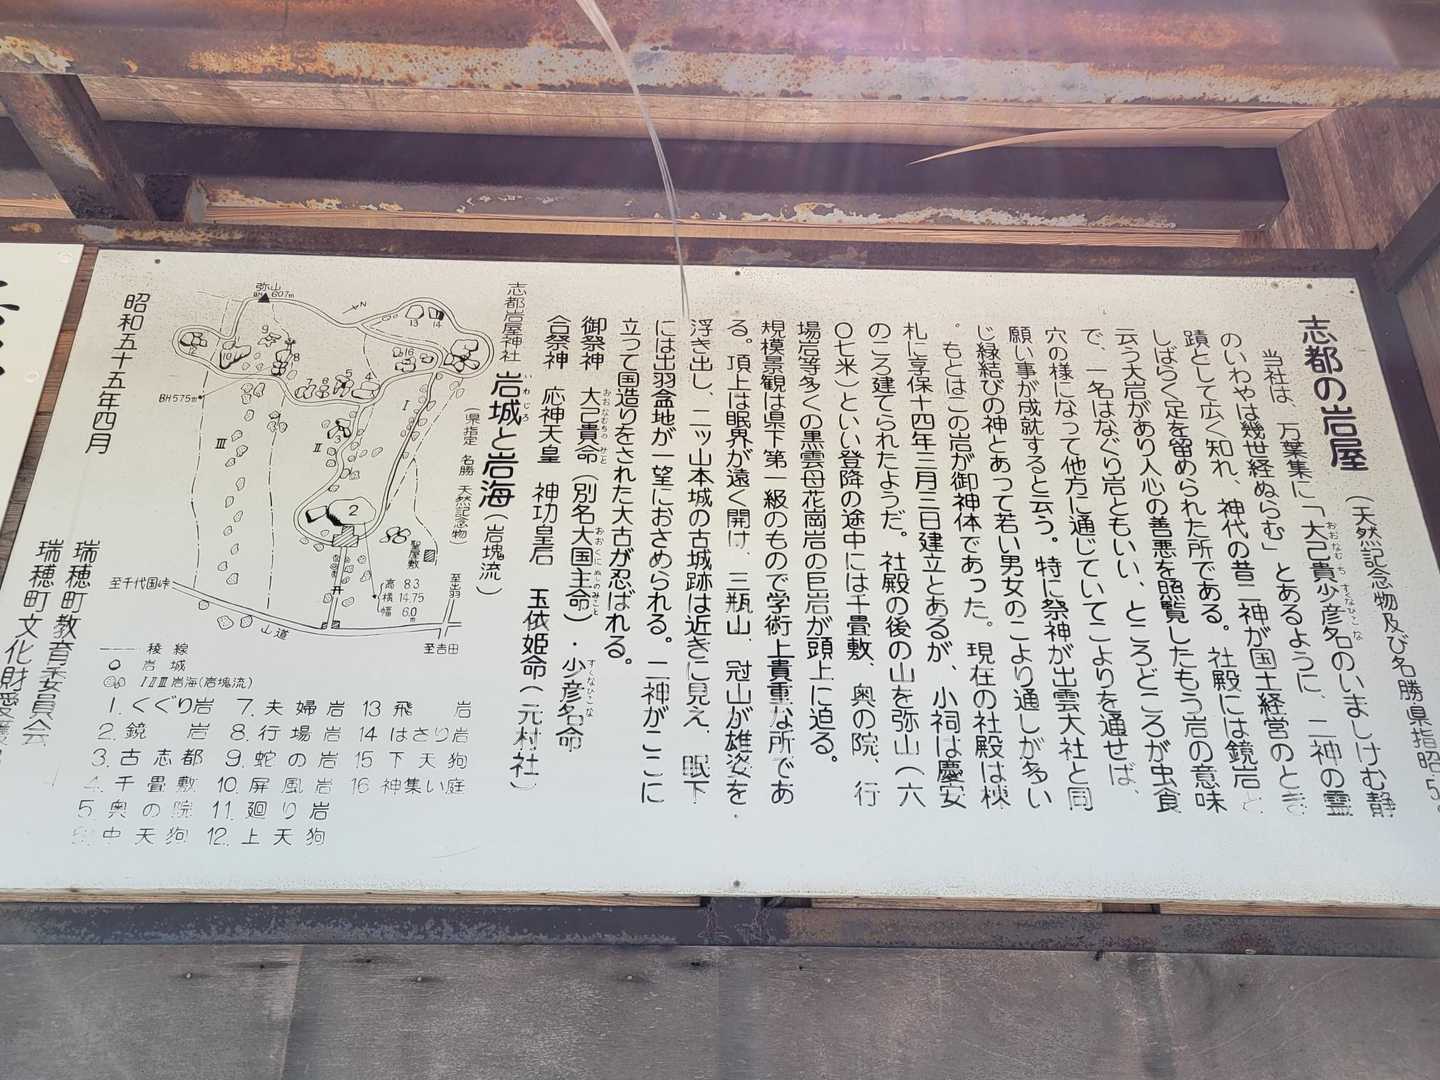 志都の岩屋
(天然記念物及び名勝県指昭5.
当社は、万葉集に「大己貴少彦名のいましけむ静
おおなむち すくなひこな
のいわやは幾世経ぬらむ」とあるように、二神の霊
蹟として広く知れ、神代の昔二神が国土経営のとき
しばらく足を留められた所である。社殿には鏡岩と
云う大岩があり人心の善悪を照覧したもう岩の意味
で、一名はなぐり岩ともいい、ところどころが虫食
穴の様になって他方に通じていてこよりを通せば、
願い事が成就すると云う。特に祭神が出雲大社と同
じ縁結びの神とあって若い男女のこより通しが多い
。もとはこの岩が御神体であった。現在の社殿は棟
札に享保十四年三月三日建立とあるが、小祠は慶安
のころ建てられたようだ。社殿の後の山を弥山(六
〇七米)といい登降の途中には千畳敷、奥の院、行
場岩等多くの黒雲母花崗岩の巨岩が頭上に迫る。
規模景観は県下第一級のもので学術上貴重な所であ
る。頂上は眼界が遠く開け、三瓶山、冠山が雄姿を
浮き出し、二ッ山本城の古城跡は近きに見え、眼下
には出羽盆地が一望におさめられる。二神がここに
立って国造りをされた太古が忍ばれる。
御祭神 大己貴命(別名大国主命)・少彦名命
おおなむちのみこと おおくにぬしのみこと すくなひこな
合祭神 応神天皇 神功皇后 玉依姫命(元村社)
志都岩屋神社 岩城と岩海(岩塊流)
いわじろ
(県指定 名勝 天然記念物)
弥山
BM 607m
N
13
14
12
10
9
8
16
7
6
5
4
BH 575m
I
II
III
3
2
聖屋敷
高 8.3
横 14.75
幅 6.0
m
至出羽
至千代国峠
山道
至吉田
稜線
岩城
I II III 岩海(岩塊流)
1. くぐり岩 7. 夫婦岩 13 飛岩
2. 鏡岩 8. 行場岩 14 はさり岩
3. 古志都 9. 蛇の岩 15 下天狗
4. 千畳敷 10. 屏風岩 16 神集い庭
5 奥の院 11. 廻り岩
6. 中天狗 12. 上天狗
昭和五十五年四月
瑞穂町教育委員会
瑞穂町文化財愛護